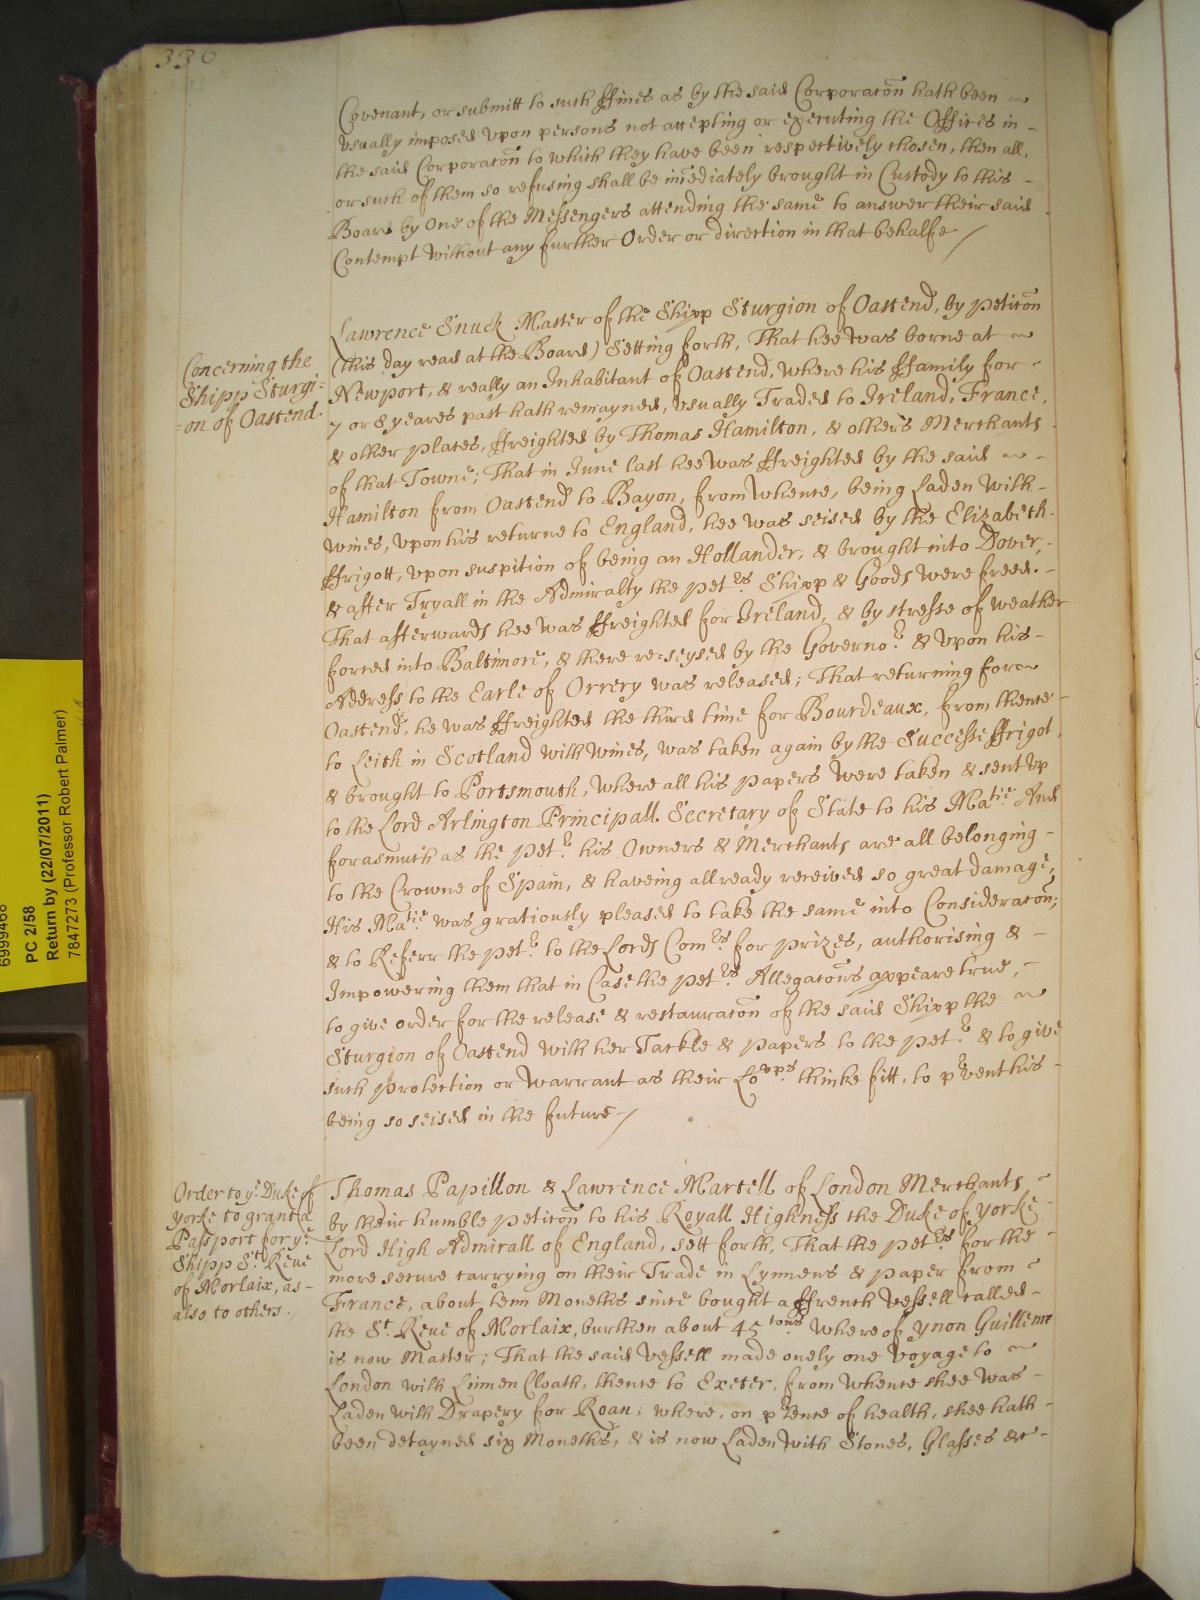 336
Covenant, or submitt to such ffines as by the said Corporacon hath been
usually imposed upon persons not accepting or executing the Offices in
the said Corporacon to which they have been respectively chosen, then all,
or such of them so refusing shall be imediately brought in Custody to this
Board by One of the Messengers attending the same to answer their said
Contempt without any further Order or direction in that behalfe /
Concerning the
Shipp Sturgi=
=on of Oastend.
Lawrence Snuck Master of the Shipp Sturgion of Oastend, by peticon
(this day read at the Board) Setting forth, That hee was borne at
Newport, & really an Inhabitant of Oastend, where his ffamily for
7 or 8 yeares past hath remayned, usually Traded to Ireland, France,
& other places, ffreighted by Thomas Hamilton, & others Merchants
of that Towne; That in June last hee was ffreighted by the said
Hamilton from Oastend to Bayon, from whence, being Laden with
wines, upon his returne to England, hee was seised by the Elizabeth
ffrigott, upon suspition of being an Hollander, & brought into Dover,
& after Tryall in the Admiralty the petrs Shipp & Goods were freed.
That afterwards hee was ffreighted for Ireland, & by stresse of weather
forced into Baltimore, & there re=seysed by the Governor & upon his
Address to the Earle of Orrery was released; That returning for
Oastend, he was ffreighted the third time for Bourdeaux, from thence
to Leith in Scotland with wines, was taken again by the Successe ffrigot,
& brought to Portsmouth, where all his papers were taken & sent up
to the Lord Arlington Principall Secretary of State to his Matie And
forasmuch as the petr his Owners & Merchants are all belonging
to the Crowne of Spain, & haveing allready received so great damage,
His Matie was gratiously pleased to take the same into Consideracon;
& to Referr the petr to the Lords Comrs for prizes, authorising &
Impowering them that in Case the petrs Allegacons appeare true,
to give order for the release & restauracon of the said Shipp the
Sturgion of Oastend with her Tackle & papers to the petr & to give
such protection or warrant as their Lopps thinke fitt, to prvent his
being so seised in the future /
Order to ye Duke of
Yorke to grant a
Passport for ye
Shipp St Reve
of Morlaix, as
also to others.
Thomas Papillon & Lawrence Martell of London Merchants
by their humble peticon to his Royall Highness the Duke of Yorke
Lord High Admirall of England, sett forth, That the petrs for the
more secure carrying on their Trade in Lynnens & paper from
France, about tenn Moneths since bought a ffrench vessell called
the St Reve of Morlaix, burthen about 45 tons whereof Ynon Guillemr
is now Master; That the said vessell made onely one voyage to
London with Linnen Cloath, thence to Exeter, from whence shee was
Laden with Drapery for Roan; where, on prtence of health, shee hath
been detayned six Moneths, & is now Laden with Stones, Glasses &c
6999468
PC 2/58
Return by (22/07/2011)
7847273 (Professor Robert Palmer)